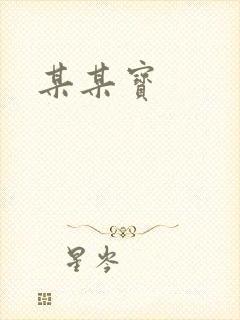 某某寶
星岑